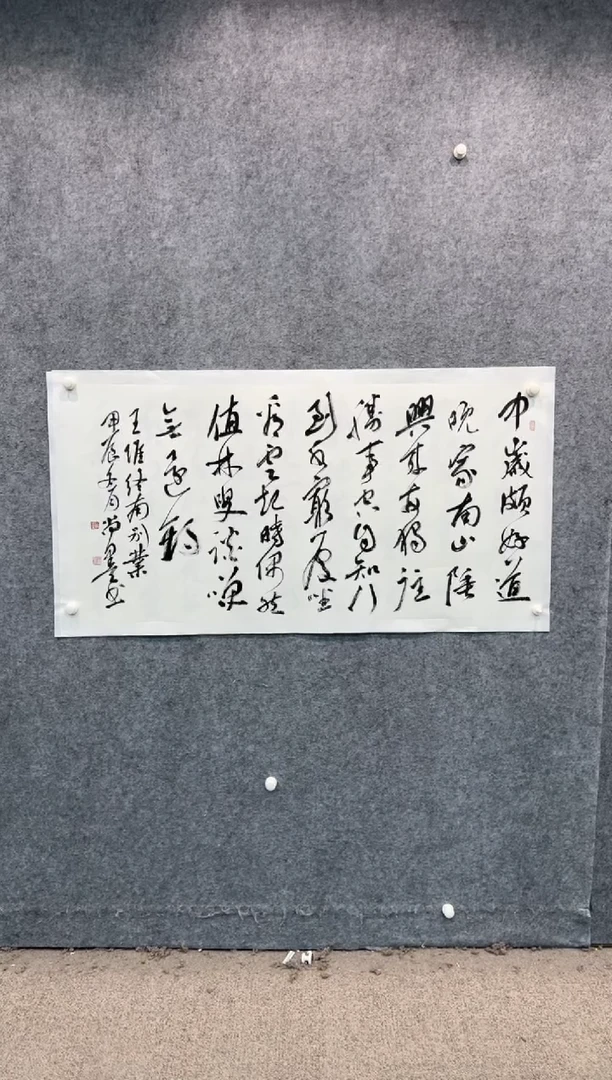 中歲頗好道
晚家南山陲
興來每獨往
勝事空自知行
到水窮處坐
看雲起時偶然
值林叟談咲
無還期
王維終南別業
甲辰冬月尚墨書